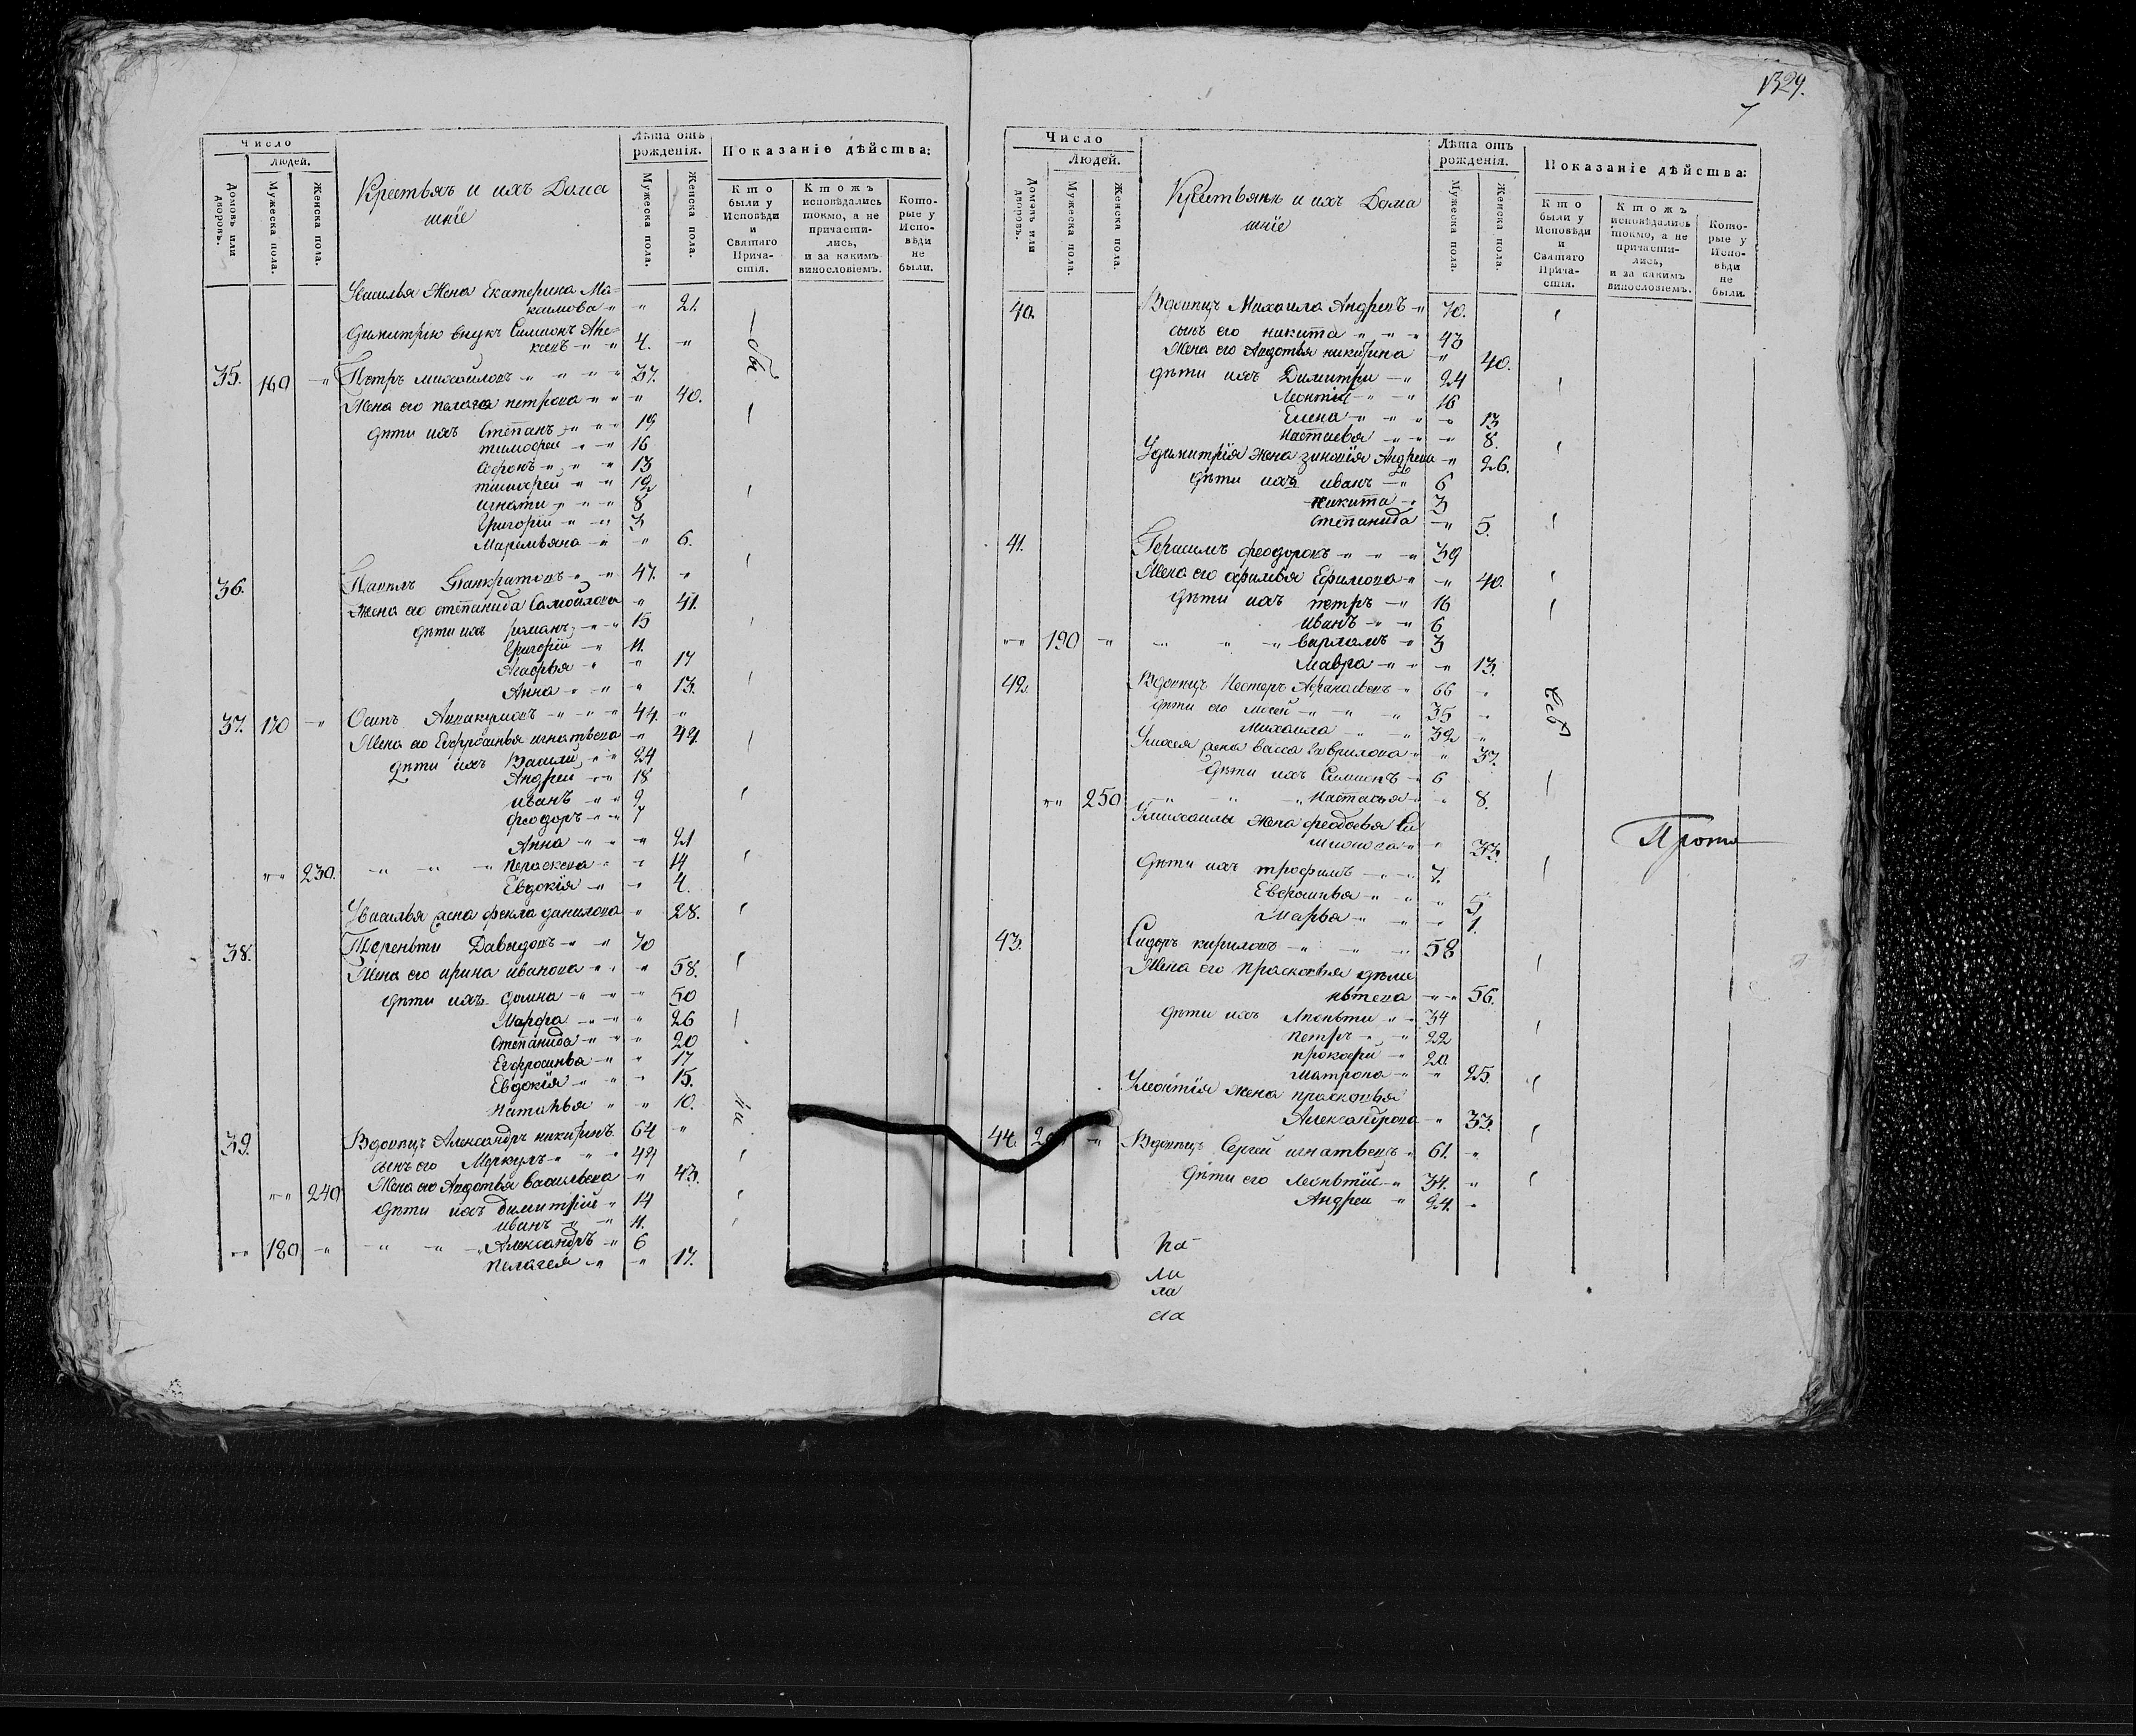 1329.
7
Число
Людей.
Домовъ или дворовъ.
Мужеска пола.
Женска пола.
Крестьянъ и ихъ Дома
шніе
Лѣта отъ
рожденія.
Мужеска пола.
Женска пола.
Показаніе дѣйства:
Кто
были у
Исповѣди
и
Святаго
Прича-
стія.
Ктожъ
исповѣдались
токмо, а не
причасти-
лись,
и за какимъ
винословіемъ.
Кото-
рые у
Испо-
вѣди
не
были.
Увасилья Жена Екатерина Ма-
каимова " " 21.
внукъ Симионъ Але-
" " 4. "
35. 160 " Петръ михайловъ " " " 37.
Жена его пелагея петрова " " " 40.
дѣти ихъ Степанъ " " " 19
тимофеи " " 16
" " " 13
тимофеи " " 12
игнати " " " 8
Григорїи " " 3
Маремьяна " " 6.
36. Павелъ Панкратовъ " " 47. "
Жена его степанида Самойлова " 41.
дѣти ихъ романъ " " 15
Григорїи " 11.
Агафья " " 17
Анна " " " 13.
37. 170 " Осипъ Аввакумовъ " " " 44. "
Жена его Евфросинья игнатьева " 42.
дѣти ихъ Василии " " 24
Андреи " " 18
иванъ " " 9
феодоръ " " 7
Анна " " " 21
" " 230. " " " Пераскева " " 14
Евдокїя " " 4.
Увасилья жена фекла данилова " 28.
38. Тереньти Давыдовъ " " 70
Жена его ирина иванова " " " 58.
дѣти ихъ домна " " " 50
Марфа " " " 26
Степанида " " " 20
Евфросинья " " 17
Евдокїя " " " 15.
Наталья " " 10.
39. Вдовецъ Александръ никифоръ 64 "
сынъ его Меркулъ " " " 42
" " 240 Жена его Авдотья васильева " 43.
дѣти ихъ димитрїи " 14
иванъ " " 11.
" " 180 " " " " Александръ " 6
пелагея " " 17.
Число
Людей.
Домовъ или дворовъ.
Мужеска пола.
Женска пола.
Крестьянѣ и ихъ Дома
шніе
Лѣта отъ
рожденія.
Мужеска пола.
Женска пола.
Показаніе дѣйства:
Кто
были у
Исповѣди
и
Святаго
Прича-
стія.
Ктожъ
исповѣдались
токмо, а не
причасти-
лись,
и за какимъ
винословіемъ.
Кото-
рые у
Испо-
вѣди
не
были.
40. Вдовецъ Михаила Андреевъ " 70.
сынъ его никита " " " 43
Жена его Авдотья никифина " 40.
дѣти ихъ Димитри " " 24
Леонтїи " " 16
Елена " " " " 13
Настасья " " " 8.
Удимитрїя жена зиновїя Андреева " 26.
дѣти ихъ иванъ " " 6
никита " 3
степанида " " 5.
41. Герасимъ феодоровъ " " " 39
Жена его офимья Ефимова " " 40.
дѣти ихъ петръ " 16
иванъ " " 6
" " 190 " " " " варламъ " 3
Мавра " " " 13.
42. Вдовецъ Несторъ Афанасьевъ " 66 "
дѣти его " " " 35 "
Михаила " " 32 "
жена васса Гаврилова " " 37.
дѣти ихъ Симионъ " 6
" " 250 " " " Настасья " " 8.
Умихаилы жена феодосья Си
" " 33.
дѣти ихъ трофимъ " " 7.
Евфросинья " " " 5
Марья " " " 1.
Проти
43. Сидоръ кириловъ " " " 58
Жена его Прасковья
" " 56.
дѣти ихъ Леоньти " " 34
петръ " " 22
прокофеи " 20.
Матрона " " 25.
Улеонтїя жена прасковья
Александрова " 33.
44. Вдовецъ Сергеи игнатьевъ " 61. "
дѣти его Леонтїи " 34. "
Андреи " 24. "
ка
ли
ла
сла